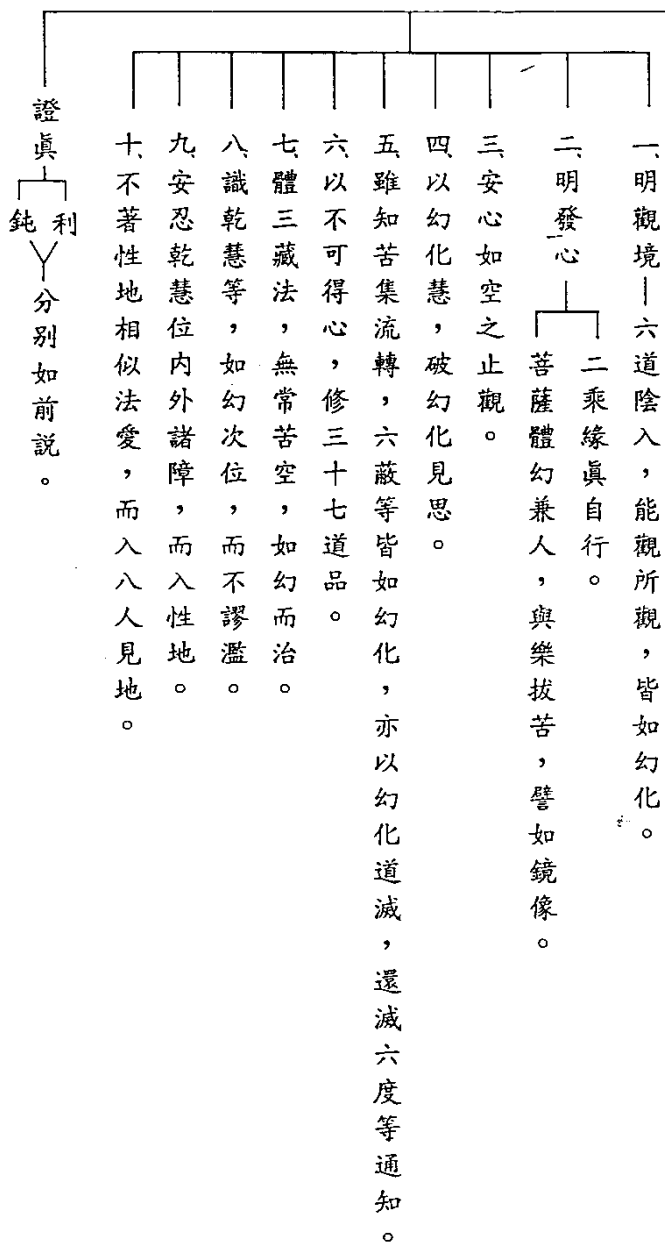 一、明觀境—六道陰入，能觀所觀，皆如幻化。
二、明發心
二乘緣眞自行。
菩薩體幻兼人，與樂拔苦，譬如鏡像。
三、安心如空之止觀。
四、以幻化慧，破幻化見思。
五、雖知苦集流轉，六蔽等皆如幻化，亦以幻化道滅，還滅六度等通知。
六、以不可得心，修三十七道品。
七、體三藏法，無常苦空，如幻而治。
八、識乾慧等，如幻次位，而不謬濫。
九、安忍乾慧位内外諸障，而入性地。
十、不著性地相似法愛，而入八人見地。
證眞
利
鈍
分别如前説。